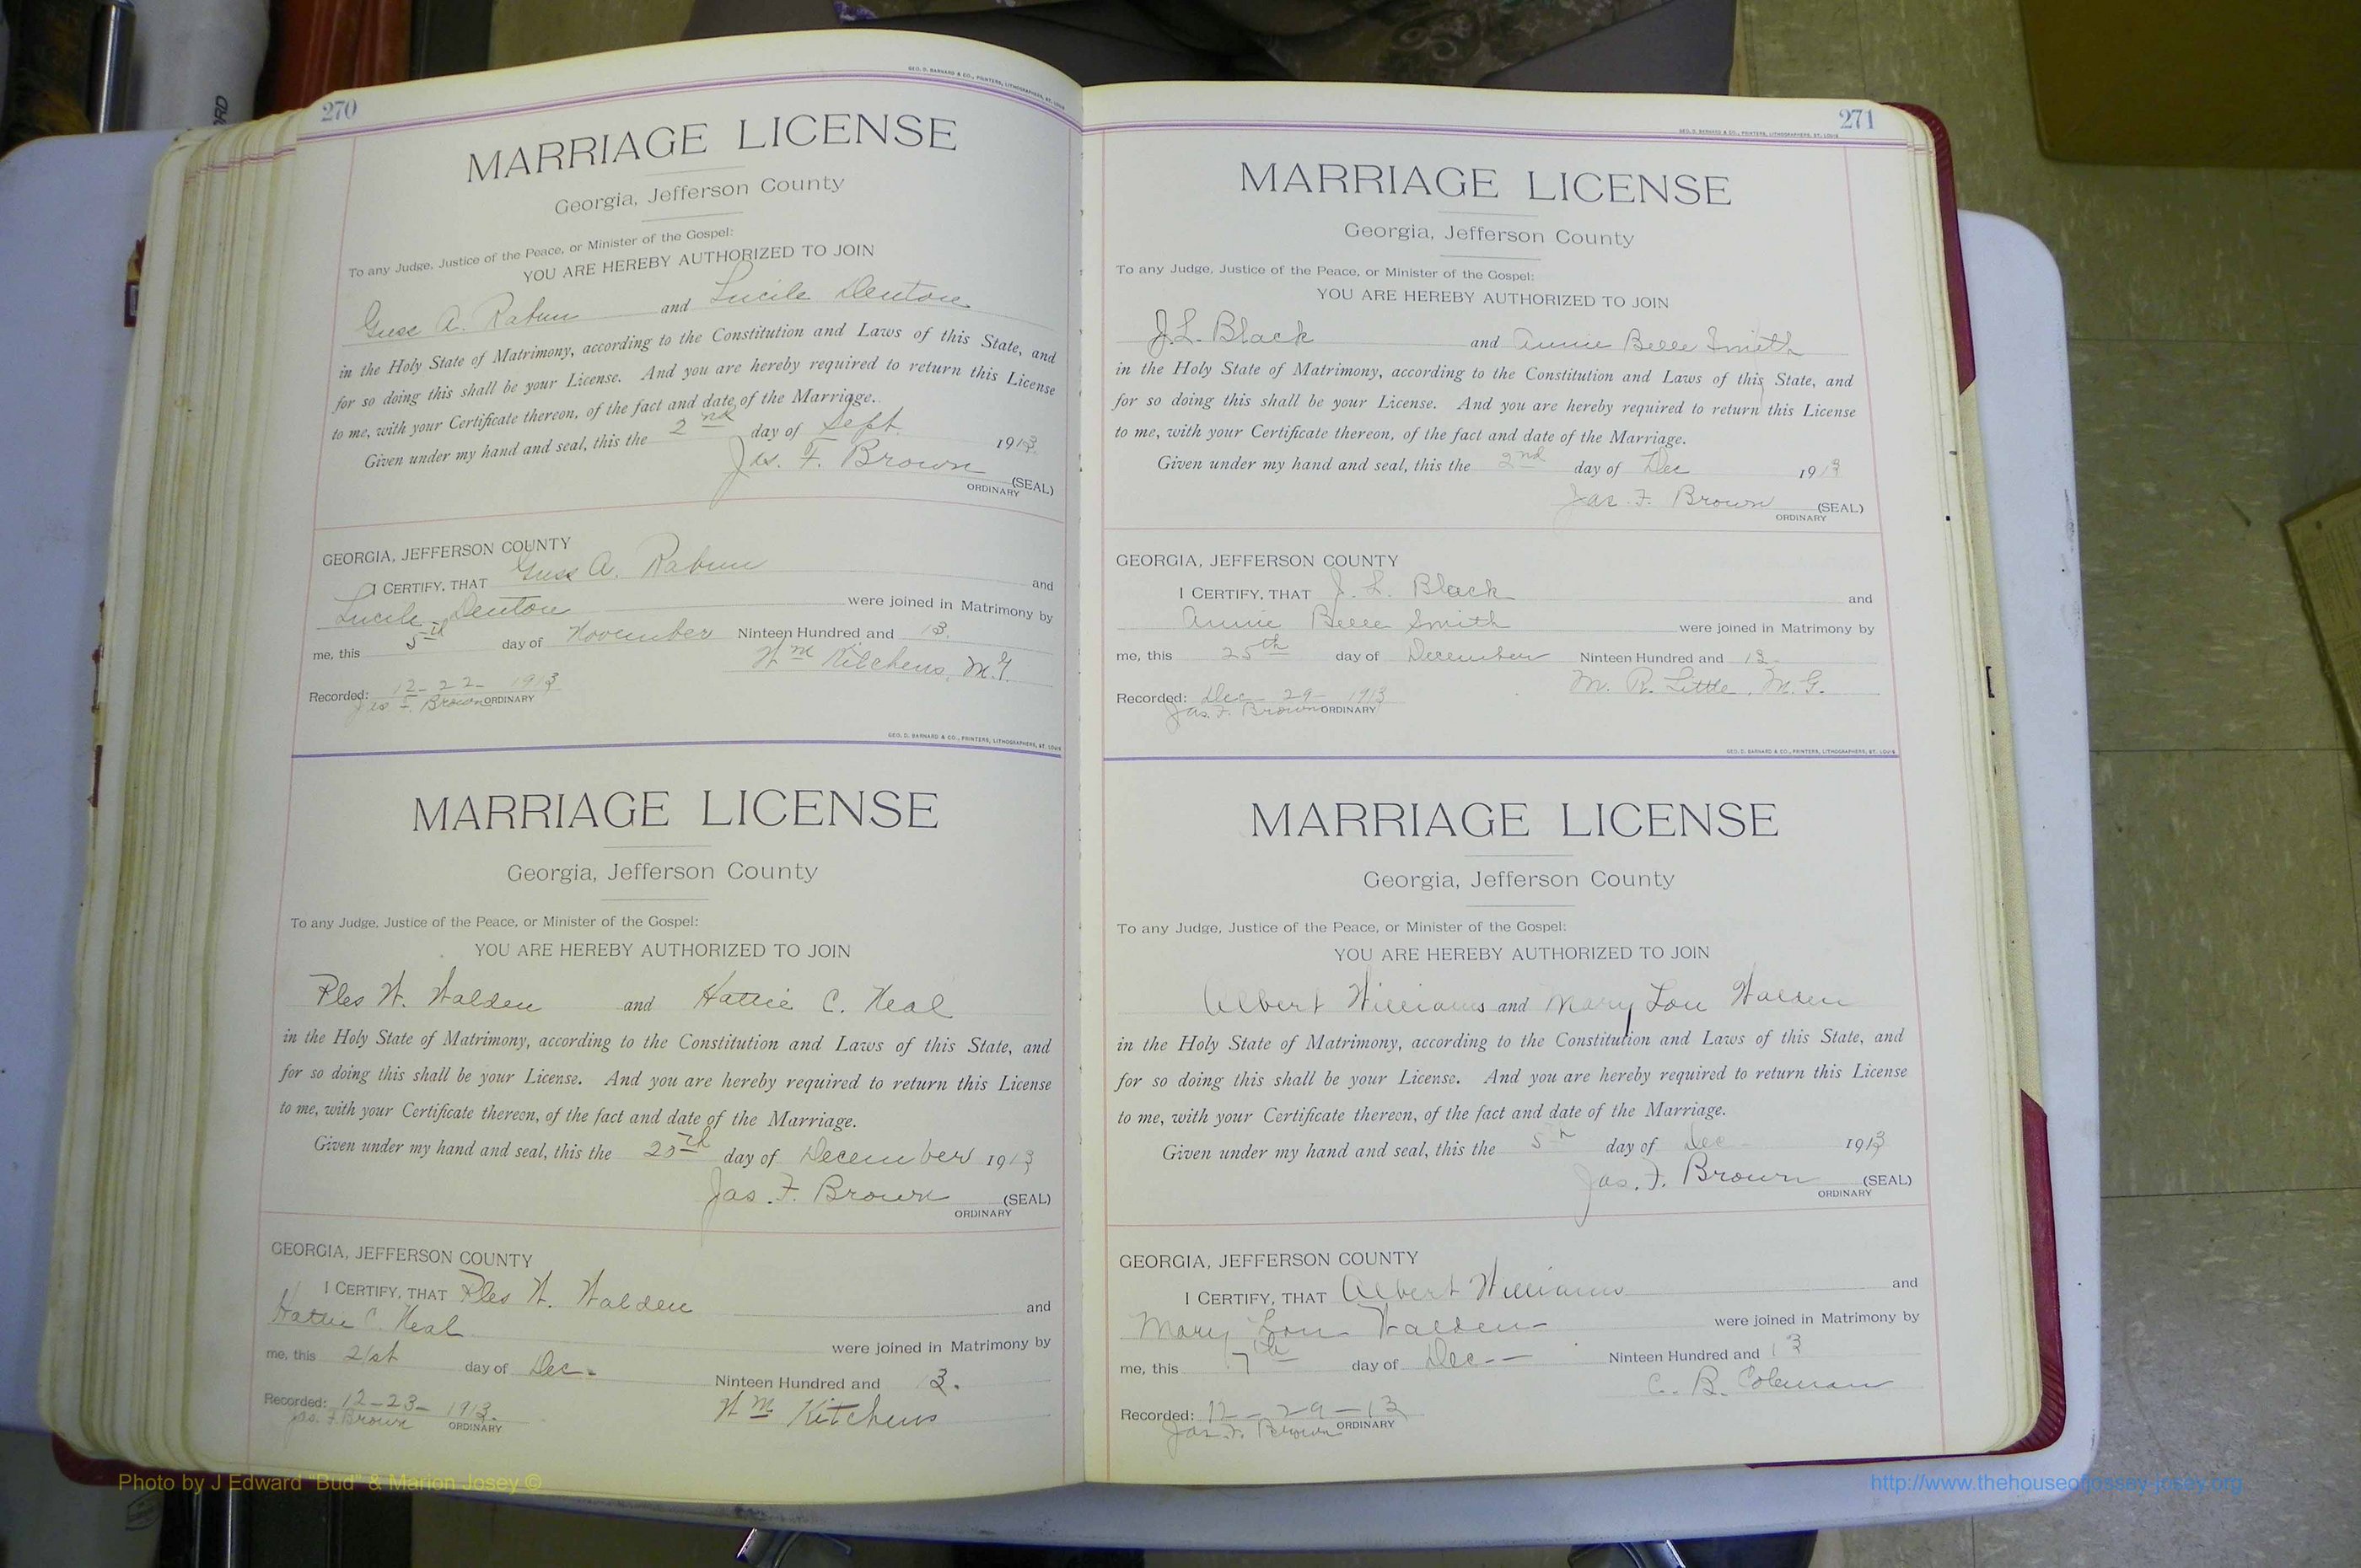 270
GEO. D. BARNARD & CO., PRINTERS, LITHOGRAPHERS, ST. LOUIS
MARRIAGE LICENSE
Georgia, Jefferson County
To any Judge, Justice of the Peace, or Minister of the Gospel:
YOU ARE HEREBY AUTHORIZED TO JOIN
Guss A. Rabun and Lucile Denton
in the Holy State of Matrimony, according to the Constitution and Laws of this State, and
for so doing this shall be your License. And you are hereby required to return this License
to me, with your Certificate thereon, of the fact and date of the Marriage.
Given under my hand and seal, this the 2nd day of Sept 1913
Jas. F. Brown (SEAL)
ORDINARY
GEORGIA, JEFFERSON COUNTY
I CERTIFY, THAT Guss A. Rabun and
Lucile Denton were joined in Matrimony by
me, this 5th day of November Ninteen Hundred and 13.
Wm Kitchens, M.G.
Recorded: 12-22-1913
Jas F. Brown ORDINARY
GEO. D. BARNARD & CO., PRINTERS, LITHOGRAPHERS, ST. LOUIS
MARRIAGE LICENSE
Georgia, Jefferson County
To any Judge, Justice of the Peace, or Minister of the Gospel:
YOU ARE HEREBY AUTHORIZED TO JOIN
Ples W. Walden and Hattie C. Neal
in the Holy State of Matrimony, according to the Constitution and Laws of this State, and
for so doing this shall be your License. And you are hereby required to return this License
to me, with your Certificate thereon, of the fact and date of the Marriage.
Given under my hand and seal, this the day of December 1913
Jas. F. Brown (SEAL)
ORDINARY
GEORGIA, JEFFERSON COUNTY
I CERTIFY, THAT Ples W. Walden and
Hattie C. Neal were joined in Matrimony by
me, this 21st day of Dec. Ninteen Hundred and 13.
Wm Kitchens
Recorded: 12-23-1913.
Jas. F. Brown ORDINARY
271
GEO. D. BARNARD & CO., PRINTERS, LITHOGRAPHERS, ST. LOUIS
MARRIAGE LICENSE
Georgia, Jefferson County
To any Judge, Justice of the Peace, or Minister of the Gospel:
YOU ARE HEREBY AUTHORIZED TO JOIN
J. L. Black and Annie Belle Smith
in the Holy State of Matrimony, according to the Constitution and Laws of this State, and
for so doing this shall be your License. And you are hereby required to return this License
to me, with your Certificate thereon, of the fact and date of the Marriage.
Given under my hand and seal, this the 2nd day of Dec 1913
Jas. F. Brown (SEAL)
ORDINARY
GEORGIA, JEFFERSON COUNTY
I CERTIFY, THAT J. L. Black and
Annie Belle Smith were joined in Matrimony by
me, this 25th day of December Ninteen Hundred and 13.
M. R. Little, M.G.
Recorded: Dec-29-1913
Jas. F. Brown ORDINARY
GEO. D. BARNARD & CO., PRINTERS, LITHOGRAPHERS, ST. LOUIS
MARRIAGE LICENSE
Georgia, Jefferson County
To any Judge, Justice of the Peace, or Minister of the Gospel:
YOU ARE HEREBY AUTHORIZED TO JOIN
Albert Williams and Mary Lou Walden
in the Holy State of Matrimony, according to the Constitution and Laws of this State, and
for so doing this shall be your License. And you are hereby required to return this License
to me, with your Certificate thereon, of the fact and date of the Marriage.
Given under my hand and seal, this the 5th day of Dec 1913
Jas. F. Brown (SEAL)
ORDINARY
GEORGIA, JEFFERSON COUNTY
I CERTIFY, THAT Albert Williams and
Mary Lou Walden were joined in Matrimony by
me, this 7th day of Dec-- Ninteen Hundred and 13
C. B. Coleman
Recorded: 12-29-13
Jas. F. Brown ORDINARY
Photo by J Edward "Bud" & Marion Josey ©
http://www.thehouseofjossey-josey.org